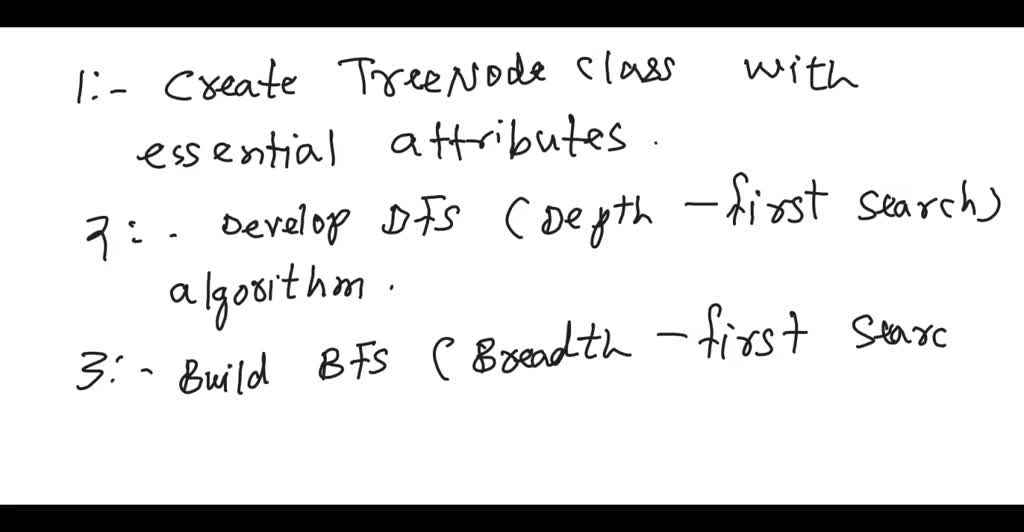 1:- Create TreeNode class with
essential attributes.
2:- Develop DFS (Depth-first search)
algorithm.
3:- Build BFS (Breadth-first searc